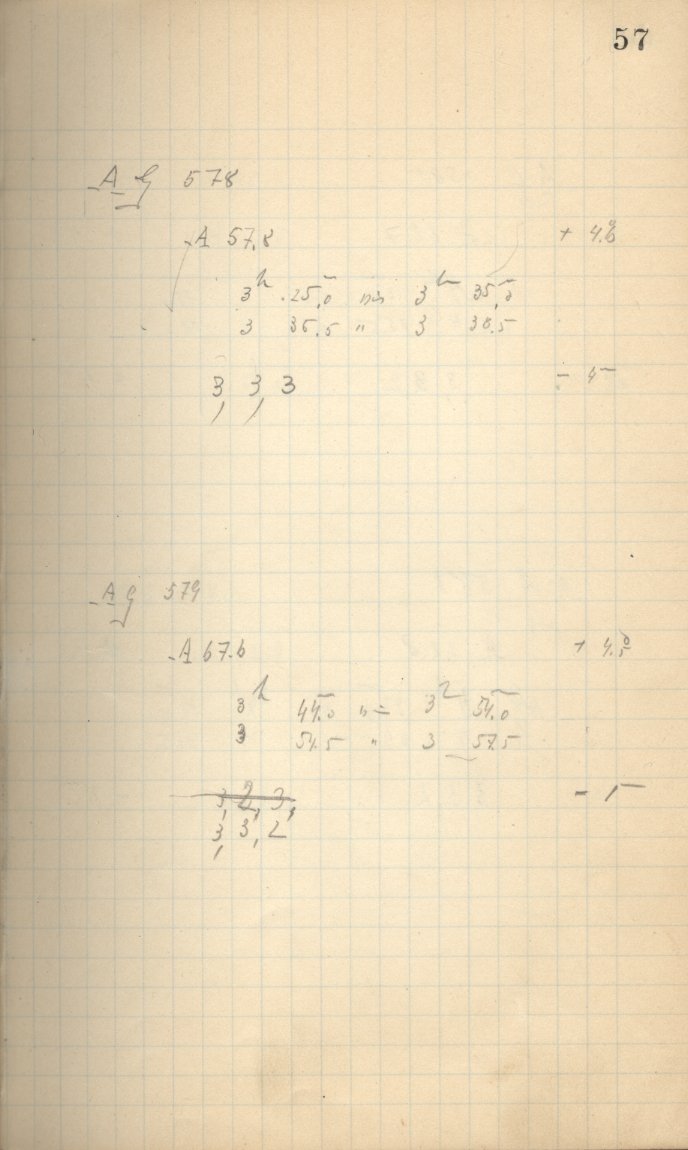 57
A G 578
A 57.8 + 4.6
3h 25.0 bis 3h 35.5
3 36.5 " 3 38.5
3, 3, 3 - 4
A G 579
A 67.6 + 4.5
3h 44.0 3h 54.0
3 54.5 " 3 57.5
3, 2, 3,
3, 3, 2